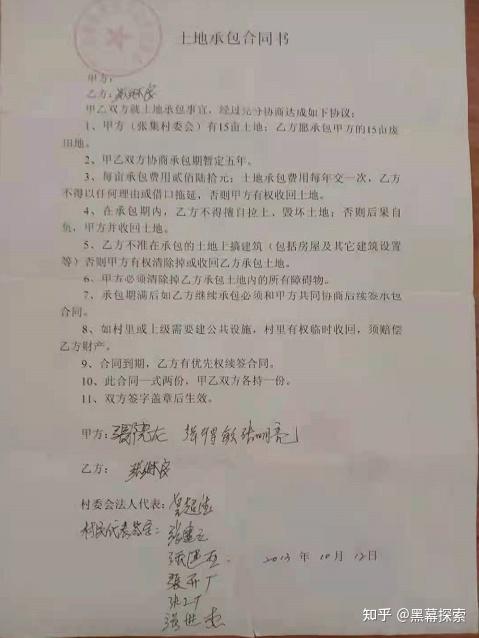 土地承包合同书
甲方:
乙方:
甲乙双方就土地承包事宜,经过充分协商达成如下协议:
1、甲方(张集村委会)有15亩土地;乙方愿承包甲方的15亩废
旧地。
2、甲乙双方协商承包期暂定五年。
3、每亩承包费用贰佰陆拾元;土地承包费用每年交一次,乙方
不得以任何理由或借口拖延,否则甲方有权收回土地。
4、在承包期内,乙方不得擅自拉土、毁坏土地;否则后果自
负,甲方并收回土地。
5、乙方不准在承包的土地上搞建筑(包括房屋及其它建筑设置
等)否则甲方有权清除掉或收回乙方承包土地。
6、甲方必须清除掉乙方承包土地内的所有障碍物。
7、承包期满后如乙方继续承包必须和甲方共同协商后续签承包
合同。
8、如村里或上级需要建公共设施,村里有权临时收回,须赔偿
乙方财产。
9、合同到期,乙方有优先权续签合同。
10、此合同一式两份,甲乙双方各持一份。
11、双方签字盖章后生效。
甲方: 张明亮
乙方:
村委会法人代表:
村民代表签字:
2013 年 10 月 12日
知乎 @黑幕探索